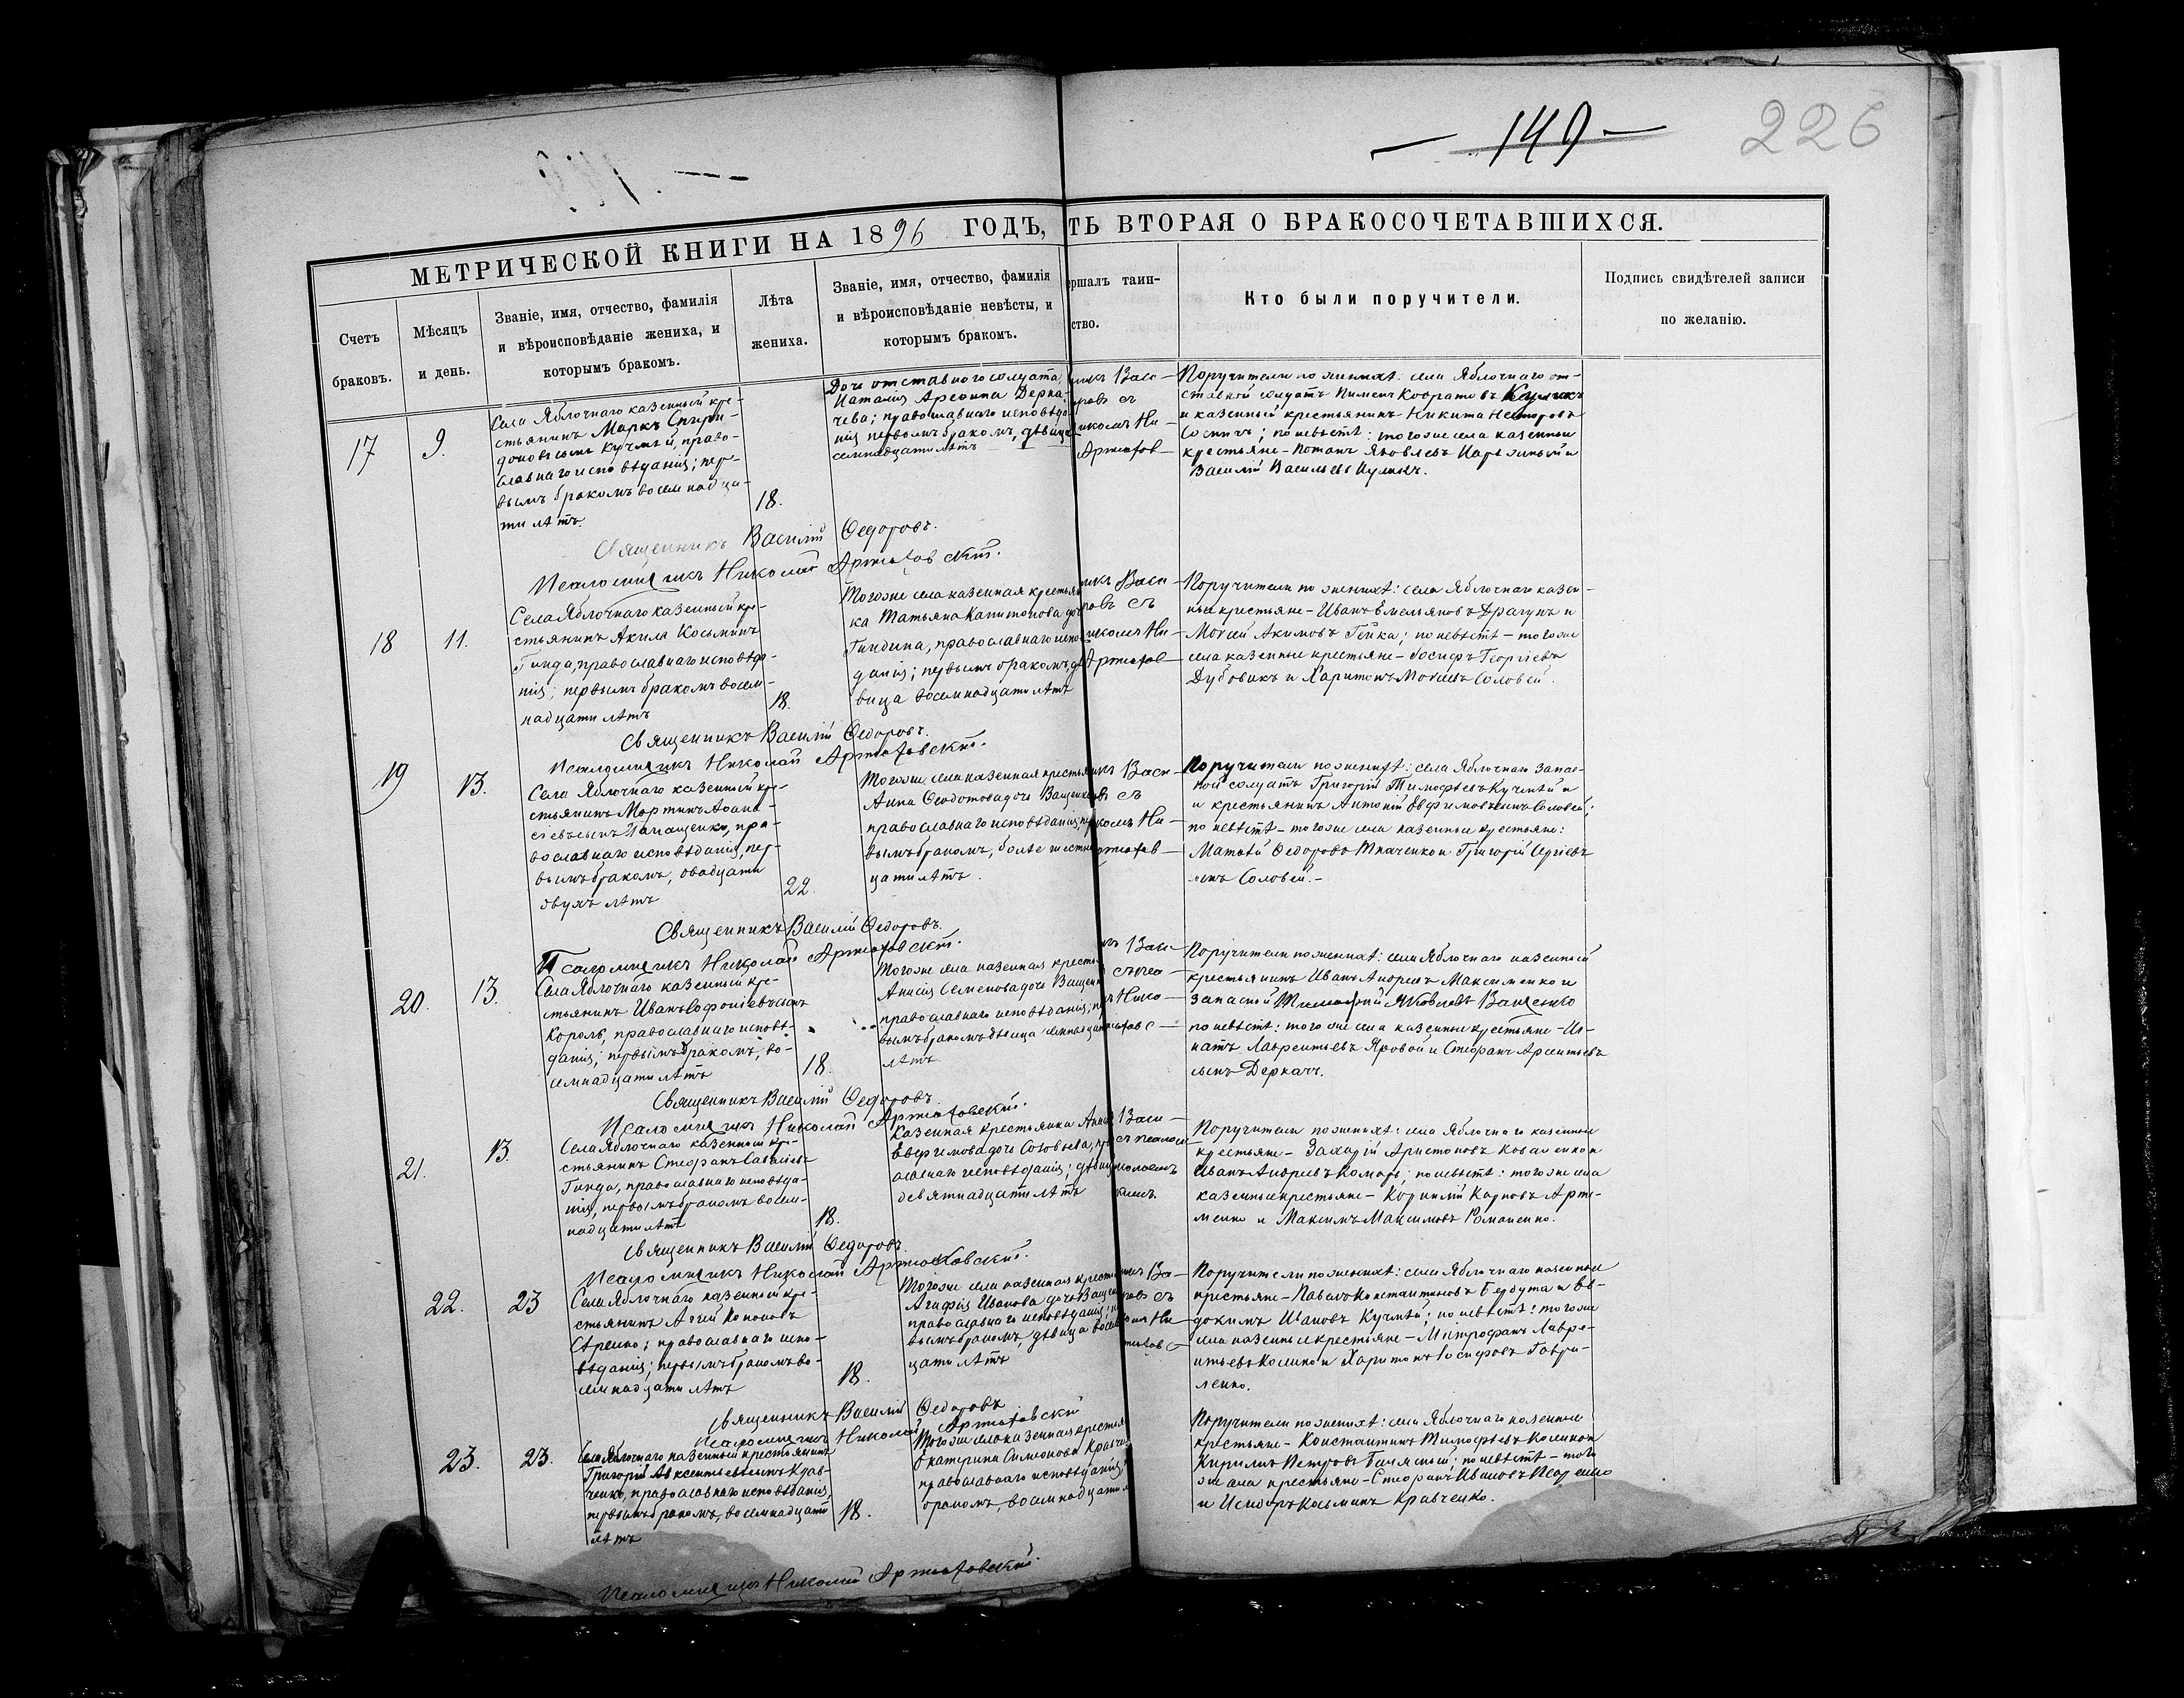 — 149 —
226
МЕТРИЧЕСКОЙ КНИГИ НА 1896 ГОДЪ,
ТЬ ВТОРАЯ О БРАКОСОЧЕТАВШИХСЯ.
Счетъ
браковъ.
Мѣсяцъ
и день.
Званіе, имя, отчество, фамилія
и вѣроисповѣданіе жениха, и
которымъ бракомъ.
Лѣта
жениха.
Званіе, имя, отчество, фамилія
и вѣроисповѣданіе невѣсты, и
которымъ бракомъ.
ершалъ таин-
ство.
Кто были поручители.
Подпись свидѣтелей записи
по желанію.
17
9.
Села Яблочнаго казенный кре-
стьянинъ Маркъ Спири-
доновъ сынъ Кучмій, право-
славнаго исповѣданія; пер-
вымъ бракомъ восемнадца-
ти лѣтъ.
18.
Дочь отставного солдата,
Наталія Арсенина Дерка-
чева; православнаго исповѣда-
нія первымъ бракомъ, дѣвица
семнадцати лѣтъ
никъ Васи-
оровъ съ
икомъ Ни-
Артюхов-
Поручители по женихѣ: села Яблочнаго от-
ставной солдатъ Пименъ Кодратовъ
и казенный крестьянинъ Никита Несторовъ
по невѣстѣ: тогоже села казенные
крестьяне - Потапъ Яковлевъ
Василій Васильевъ
Священникъ Василій Ѳедоровъ.
Псаломщикъ Николай Артюховскій.
18
11.
Села Яблочнаго казенный кре-
стьянинъ Акила Косьминъ
Гинда, православнаго исповѣда-
нія; первымъ бракомъ восем-
надцати лѣтъ
18.
Тогоже села казенная крестьян
ка Татьяна Капитонова доч
Гиндина, православнаго испо
данія; первымъ бракомъ, дѣ
вица восемнадцати лѣтъ
никъ Васи-
ровъ съ
икомъ Ни-
Артюхов-
Поручители по женихѣ: села Яблочнаго казен-
ные крестьяне - Иванъ Емельяновъ Драгунъ и
Моисей Акимовъ Гейка; по невѣстѣ - тогоже
села казенные крестьяне - Іосифъ Георгіевъ
Дубовикъ и Харитонъ Моисеевъ Соловей.
Священникъ Василій Ѳедоровъ.
Псаломщикъ Николай Артюховскій.
19
13.
Села Яблочнаго казенный кре-
стьянинъ Мартинъ Аѳана-
сіевъ сынъ Папащенко, пра-
вославнаго исповѣданія, пер-
вымъ бракомъ, двадцати
двухъ лѣтъ
22.
Тогоже села казенная крестья
Анна Ѳеодотова дочь Ващенк
православнаго исповѣданія, пер
вымъ бракомъ, болѣе шестна
цати лѣтъ.
икъ Васи-
овъ съ
комъ Ни-
ртюхов-
Поручители по женихѣ: села Яблочнаго запас-
ной солдатъ Григорій Тимофеевъ Кучмій и
и крестьянинъ Антоній Евфимовъ сынъ Соловей;
по невѣстѣ - тогоже села казенные крестьяне:
Матвѣй Ѳедоровъ Ткаченко и Григорій Сергіевъ
сынъ Соловей.-
Священникъ Василій Ѳедоровъ.
Псаломщикъ Николай Артюховскій.
20.
13.
Села Яблочнаго казенный кре-
стьянинъ Иванъ Софоніевъ сынъ
Король, православнаго исповѣ-
данія; первымъ бракомъ, во-
семнадцати лѣтъ
18.
Тогоже села казенная кресть
Анисія Семенова дочь Ващенк
православнаго исповѣданія; пер
вымъ бракомъ дѣвица семнадцат
лѣтъ.
къ Васи-
съ псо-
Нико-
тюховс-
Поручители по женихѣ: села Яблочнаго казенный
крестьянинъ Иванъ Андреевъ Максименко и
запасной Тимофей Яковлевъ Ващенко
по невѣстѣ: тогоже села казенные крестьяне - Иг-
натъ Лаврентьевъ Яровой и Стефанъ Арсентьевъ
сынъ Деркачъ.
Священникъ Василій Ѳедоровъ.
Псаломщикъ Николай Артюховскій.
21.
13.
Села Яблочнаго казенный кре-
стьянинъ Стефанъ Савичевъ
Гинда, православнаго исповѣда-
нія, первымъ бракомъ восем-
надцати лѣтъ
18.
Казенная крестьянка Анна
Евфимова дочь Соловьева, пра
ославнаго исповѣданія; дѣвица
девятнадцати лѣтъ
Васи-
съ псалом-
иколаемъ
кимъ.
Поручители по женихѣ: села Яблочнаго казенные
крестьяне - Захарій Аристоновъ Коваленко и
Иванъ Андреевъ Комарь; по невѣстѣ: тогоже села
казенные крестьяне - Корнилій Карповъ Арте-
менко и Максимъ Максимовъ Романенко.
Священникъ Василій Ѳедоровъ.
Псаломщикъ Николай Артюховскій.
22.
23
Села Яблочнаго казенный кре-
стьянинъ Аггей Кононовъ
православнаго испо-
вѣданія; первымъ бракомъ во-
семнадцати лѣтъ
18.
Тогоже села казенная кресть
Агафія Иванова дочь Ващен
православнаго исповѣданія; п
вымъ бракомъ, дѣвица восем
цати лѣтъ
никъ Ва-
ровъ съ
омъ Ни-
тюховс-
Поручители по женихѣ: села Яблочнаго казенные
крестьяне - Павелъ Константиновъ Бердута и Ев-
докимъ Ивановъ Кучмій; по невѣстѣ: тогоже
села казенные крестьяне - Митрофанъ Лавре-
нтьевъ Колинко и Харитонъ Іосифовъ Гаври-
ленко.
Священникъ Василій Ѳедоровъ
Псаломщикъ Николай Артюховскій
23.
23.
Села Яблочнаго казенный крестьянинъ
Григорій Авксентьевъ сынъ Крав-
ченко, православнаго исповѣданія,
первымъ бракомъ, восемнадцати
лѣтъ
18.
Тогоже села казенная крестья
Екатерина Симеонова Кравче
православнаго исповѣданія,
бракомъ, восемнадцати л
Поручители по женихѣ: села Яблочнаго казенные
крестьяне - Константинъ Тимофеевъ Колинко и
Кирилъ Петровъ по невѣстѣ - того
же села крестьяне - Стефанъ Ивановъ
и Исидоръ Косьминъ Кравченко.
Псаломщикъ Николай Артюховскій.